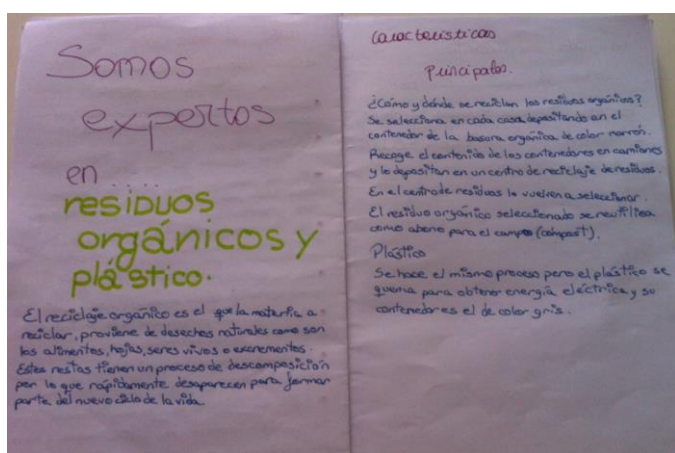 Somos
expertos
en ....
residuos
orgánicos y
plástico.
El reciclaje orgánico es el que la materia a
reciclar, proviene de desechos naturales como son
los alimentos, hojas, seres vivos o excrementos.
Estos restos tienen un proceso de descomposición
por lo que rápidamente desaparecen para formar
parte del nuevo ciclo de la vida.
Características
Principales.
¿Cómo y dónde se reciclan los residuos orgánicos?
Se selecciona en cada casa depositando en el
contenedor de la basura orgánica de color marrón.
Recoge el contenido de los contenedores en camiones
y lo depositan en un centro de reciclaje de residuos.
En el centro de residuos lo vuelven a seleccionar.
El residuo orgánico seleccionado se reutiliza
como abono para el campo (compost).
Plástico
Se hace el mismo proceso pero el plástico se
quema para obtener energía eléctrica y su
contenedor es el de color gris.